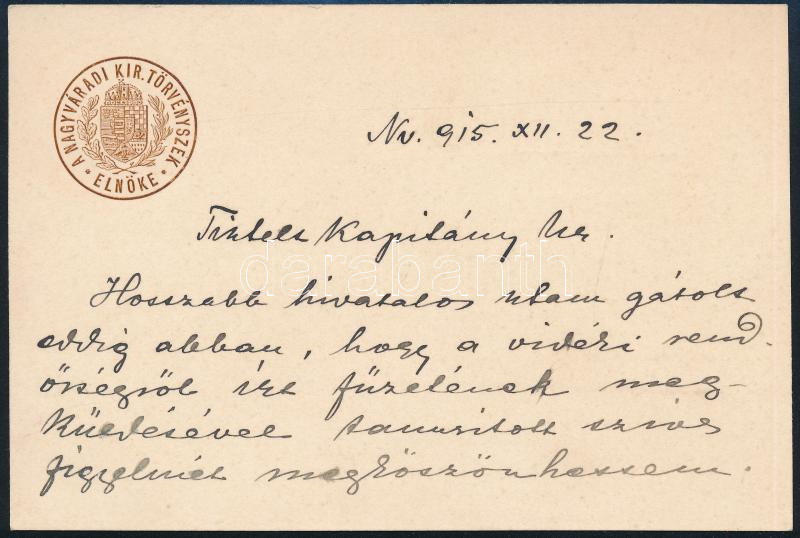 A NAGYVÁRADI KIR. TÖRVÉNYSZÉK
ELNÖKE
Nv. 915. XII. 22.
Tisztelt Kapitány Ur.
Hosszabb hivatalos utam gátolt
eddig abban, hogy a vidéki rend-
őrségről írt füzetének meg-
küldésével tanusitott szives
figyelmét megköszönhessem.
darabanth